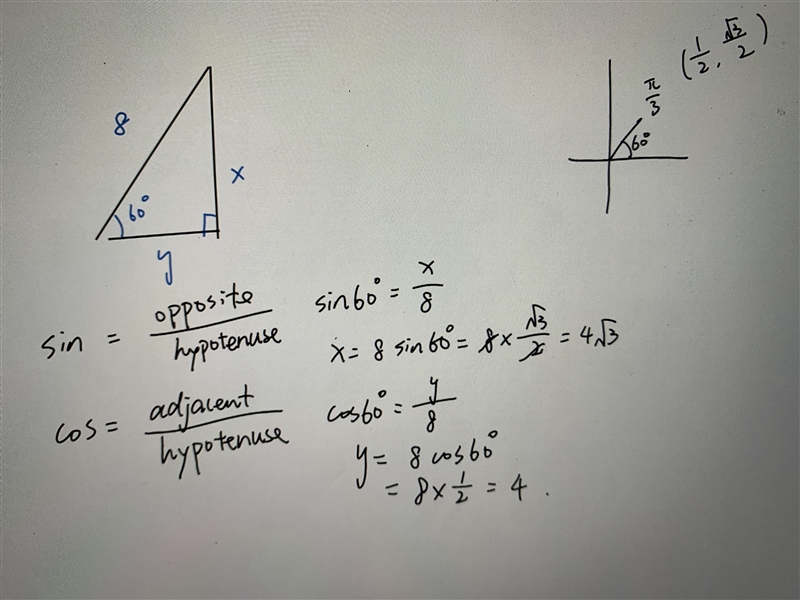 8
60°
x
y
(1/2, √3/2)
π/3
60°
sin = opposite/hypotenuse
sin60° = x/8
x = 8 sin60° = 8 × √3/2 = 4√3
cos = adjacent/hypotenuse
cos60° = y/8
y = 8 cos60°
= 8 × 1/2 = 4.